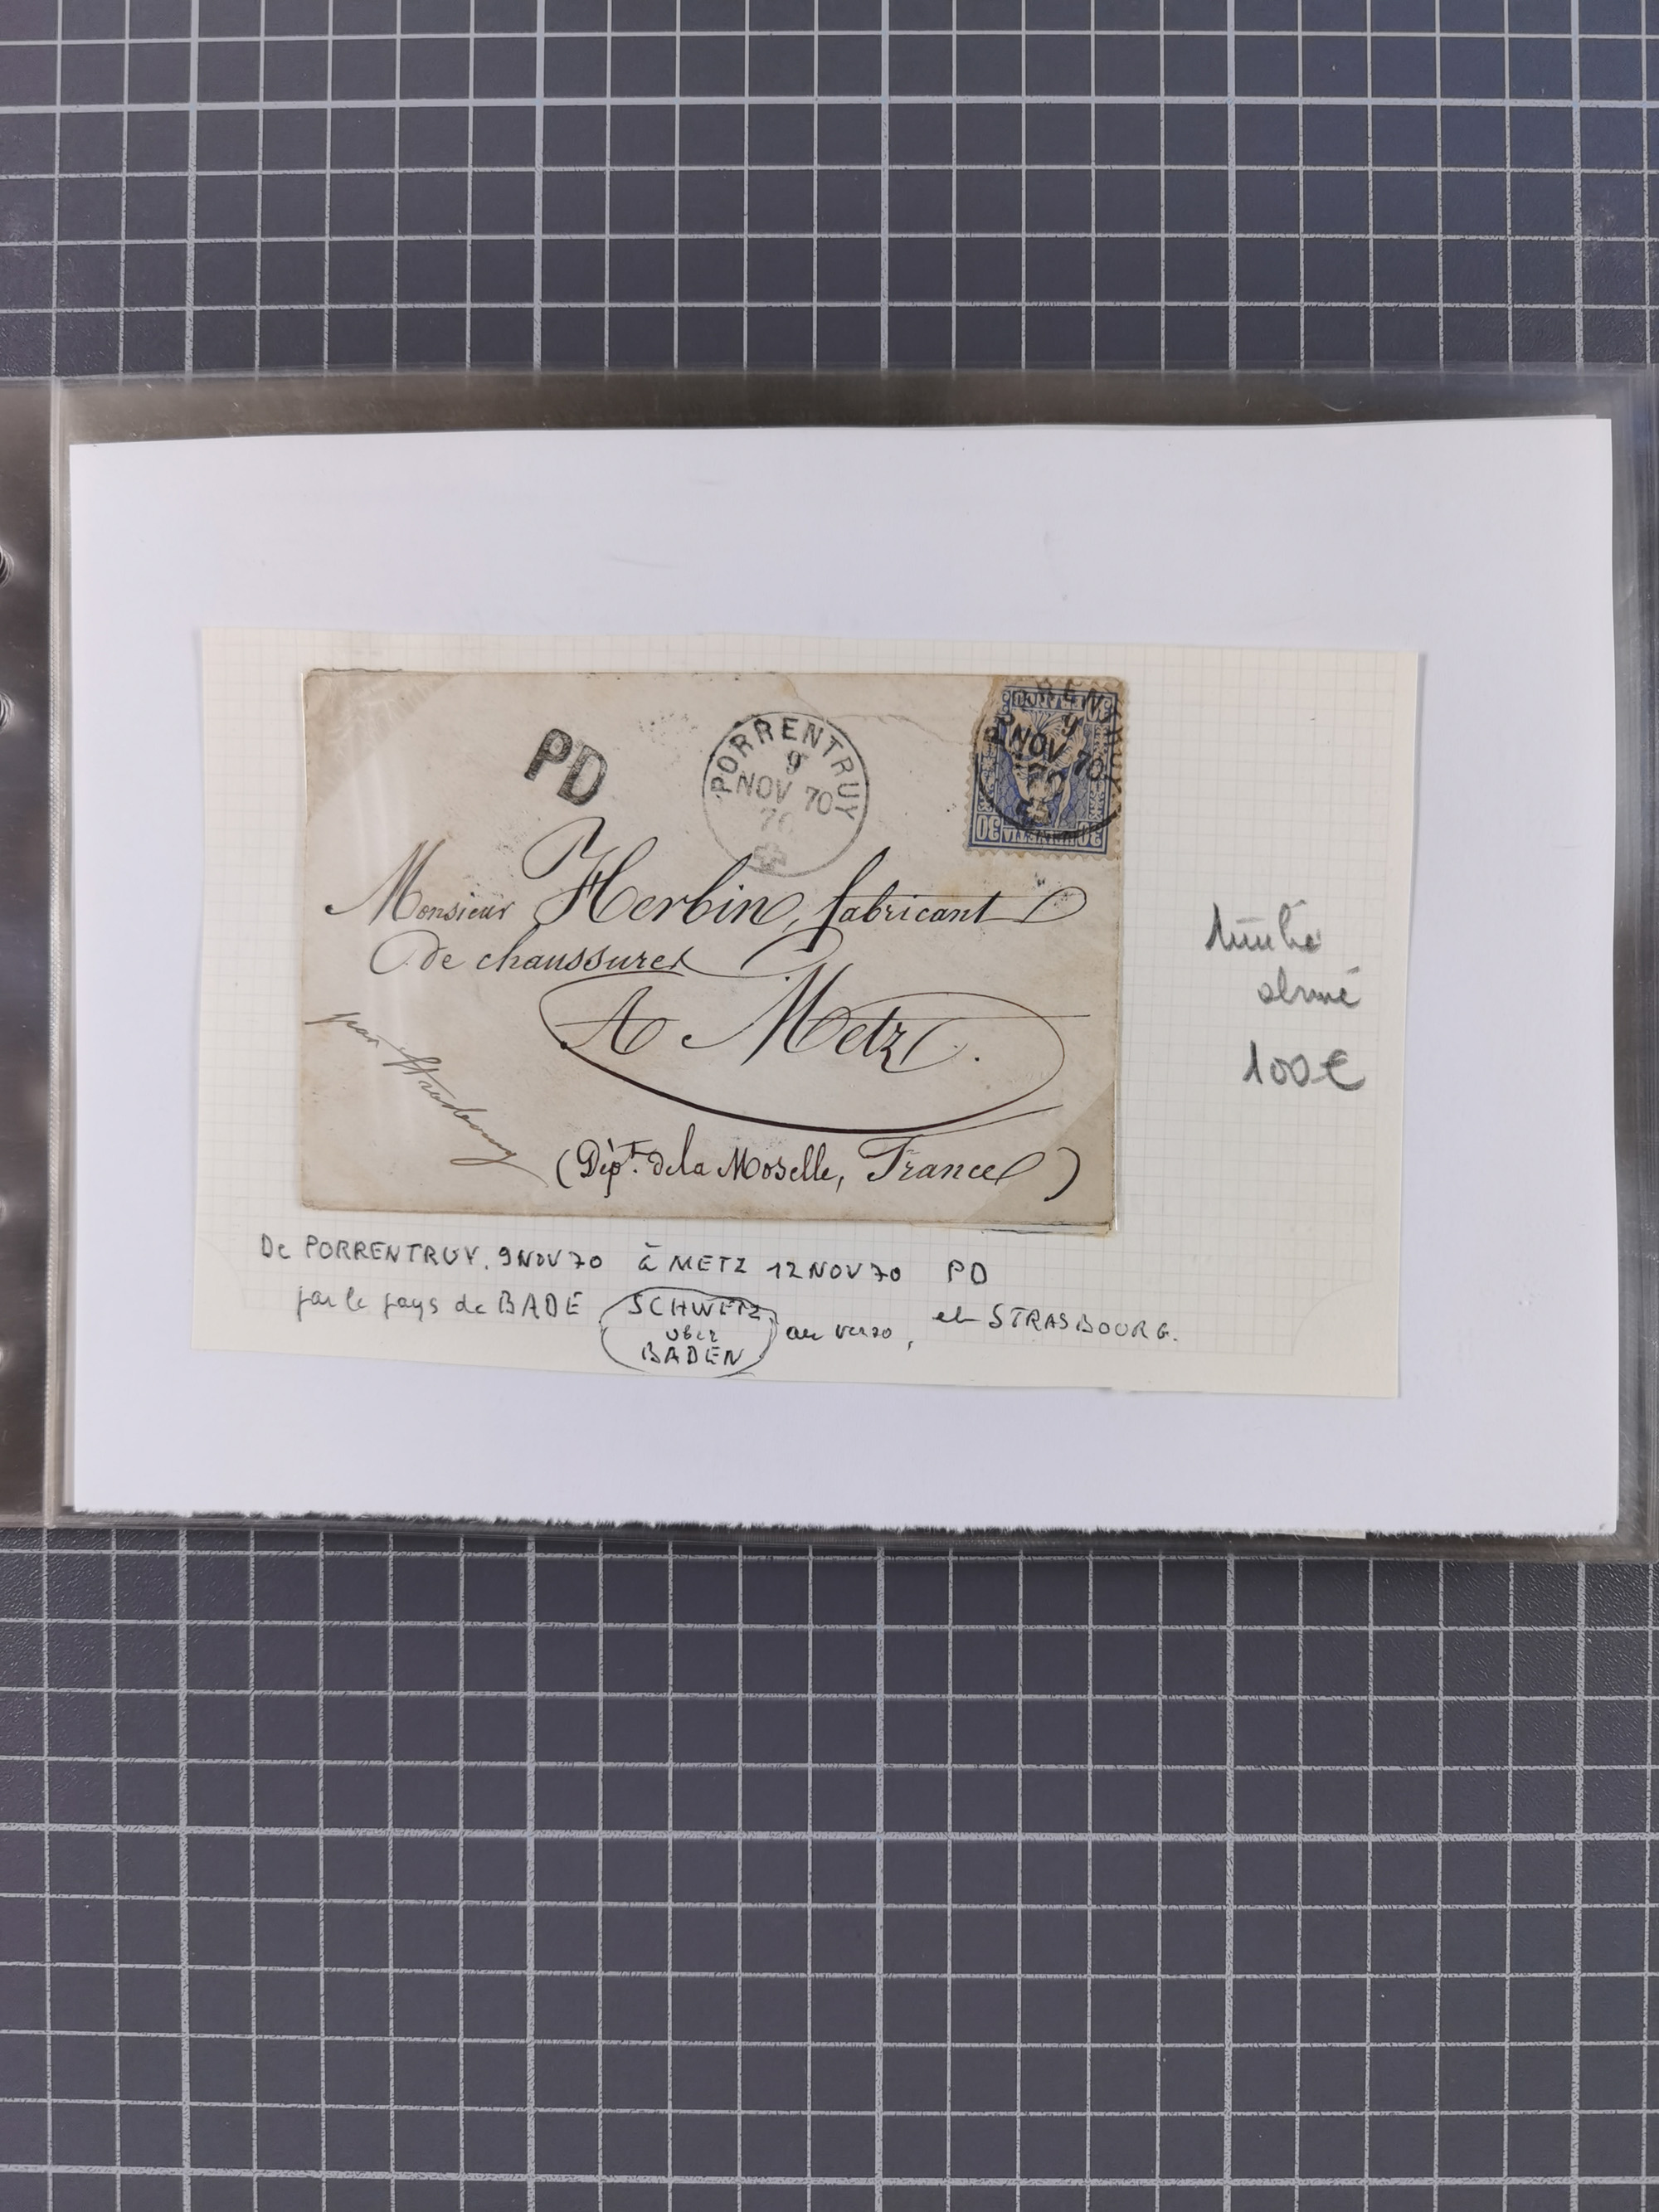 PD
PORRENTRUY
9
NOV 70
9
NOV 70
30 HELVETIA 30
Monsieur Herbin, fabricant
de chaussures
A Metz.
par Strasbourg
(Dépt. de la Moselle, France)
timbre
abimé
100€
De PORRENTRUY. 9 NOV 70 à METZ 12 NOV 70 PD
par le pays de BADE SCHWEIZ
über
BADEN
au verso, et STRASBOURG.